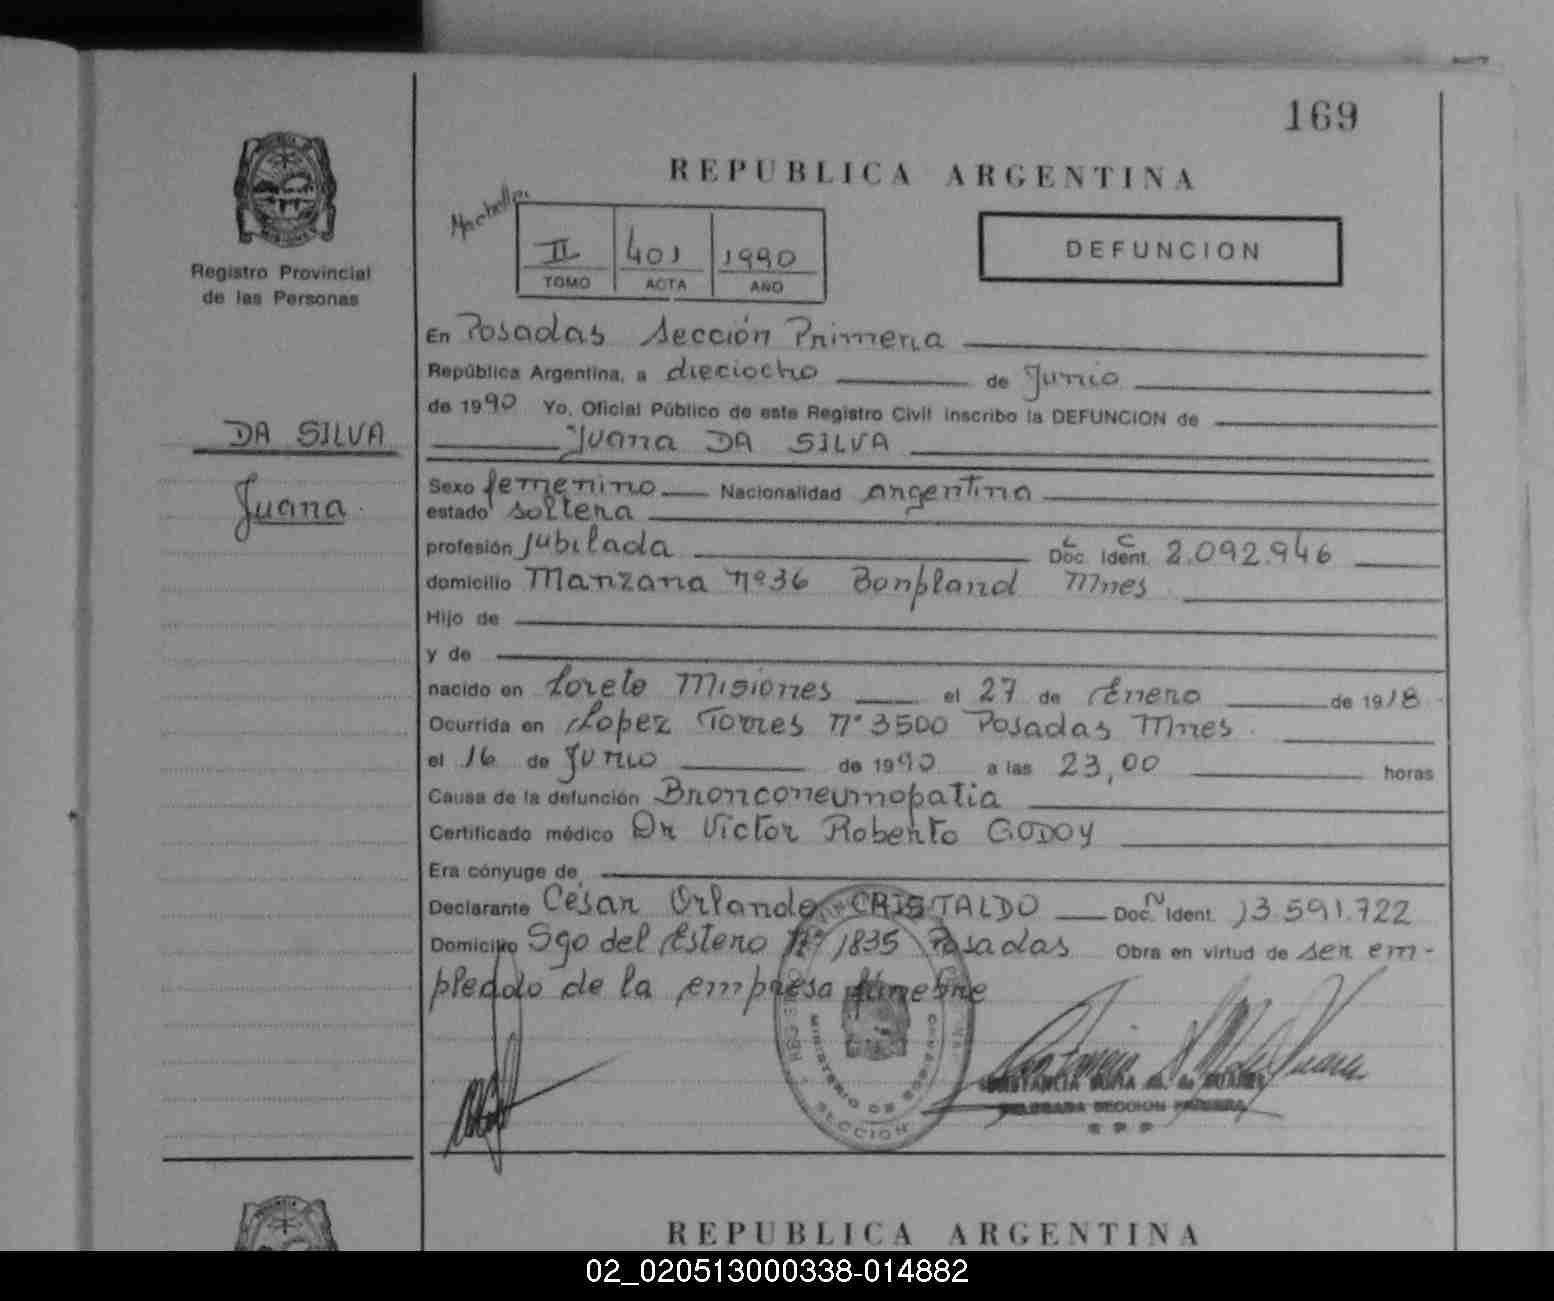 169
REPUBLICA ARGENTINA
II 401 1990
TOMO ACTA AÑO
DEFUNCION
Registro Provincial
de las Personas
DA SILVA
Juana
En Posadas Sección Primera
República Argentina, a dieciocho de Junio
de 1990 Yo, Oficial Público de este Registro Civil inscribo la DEFUNCION de
Juana DA SILVA
Sexo femenino Nacionalidad argentina
estado soltera
L C
profesión jubilada Doc. Ident. 2.092.946
domicilio Manzana Nº 36 Bonpland Mnes
Hijo de
y de
nacido en Loreto Misiones el 27 de Enero de 1918
Ocurrida en Lopez Torres Nº 3500 Posadas Mnes.
el 16 de Junio de 1990 a las 23,00 horas
Causa de la defunción Bronconeumopatia
Certificado médico Dr Victor Roberto GODOY
Era cónyuge de
Declarante César Orlando CRISTALDO Doc. N Ident. 13.591.722
Domicilio Sgo del Estero Nº 1835 Posadas Obra en virtud de ser em-
pleado de la empresa funebre
MINISTERIO DE GOBIERNO
SECCION
DELEGADA SECCION PRIMERA
R P P
REPUBLICA ARGENTINA
02_020513000338-014882